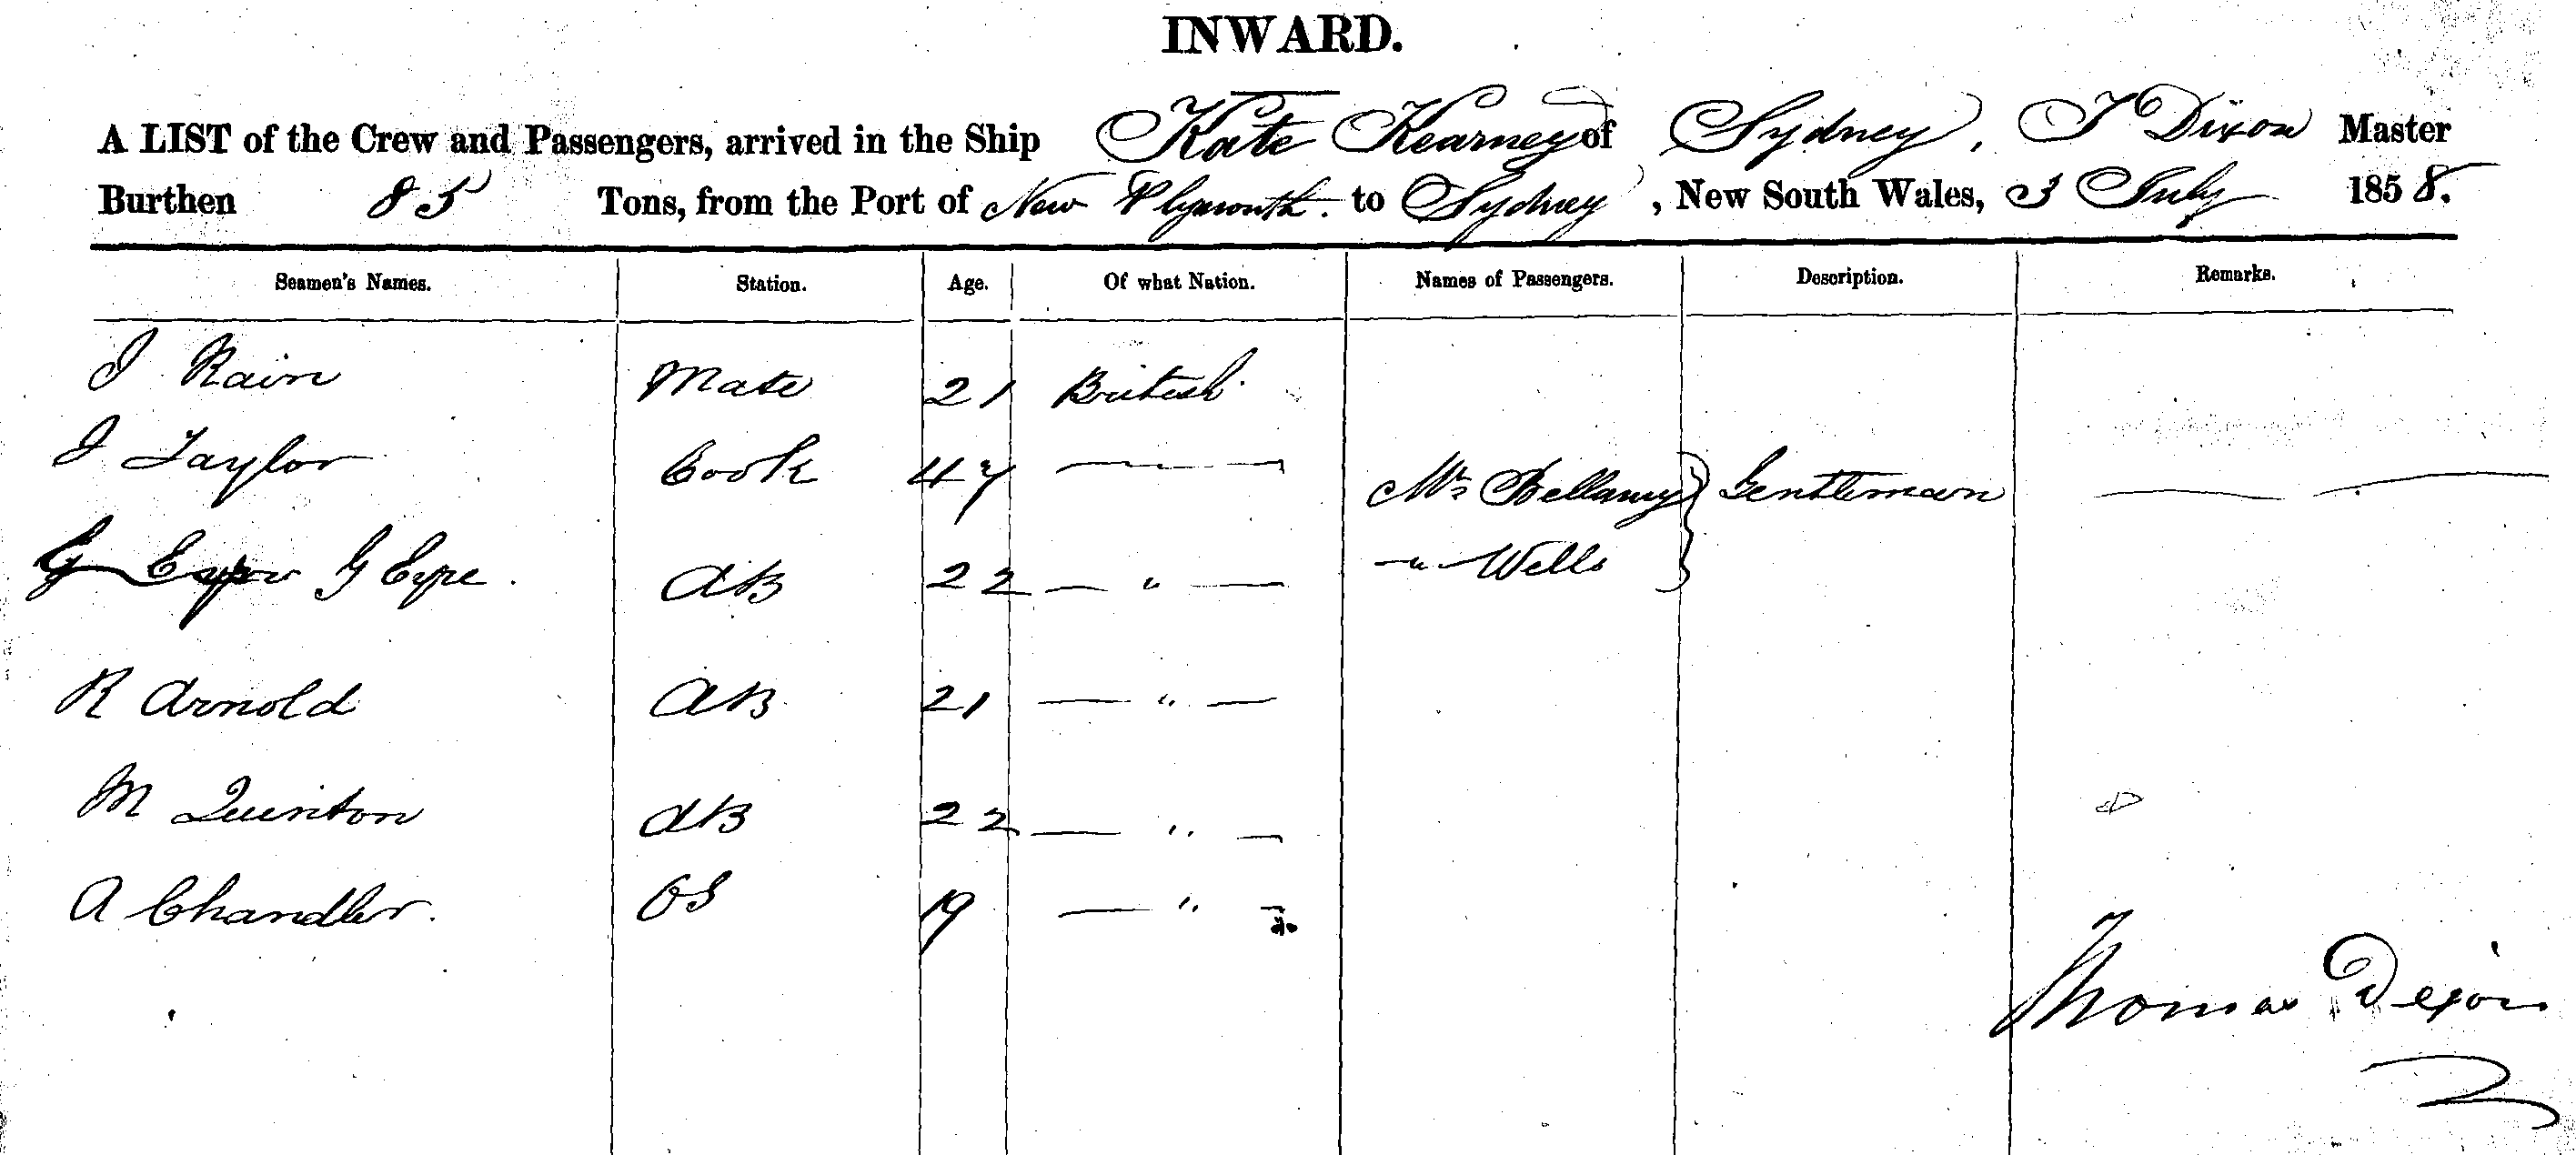 INWARD.
A LIST of the Crew and Passengers, arrived in the Ship Kate Kearney of Sydney, T Dixon Master
Burthen 85 Tons, from the Port of New Plymouth. to Sydney, New South Wales, 3 July 1858.
Seamen's Names. Station. Age. Of what Nation. Names of Passengers. Description. Remarks.
J Rain Mate 21 British
J Taylor Cook 47 — Mr Bellamy Gentleman —
G Eype AB 22 — " — — " Wells
R Arnold AB 21 — " —
M Quinton AB 22 — " —
A Chandler. OS 19 — " —
Thomas Dixon